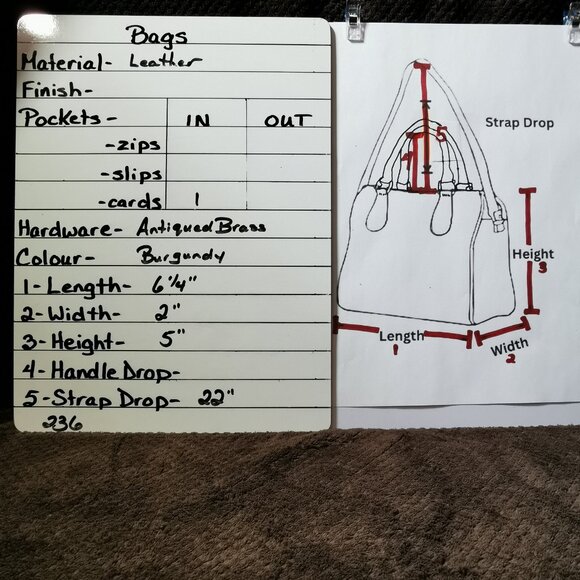 Bags
Material- Leather
Finish-
Pockets- IN OUT
-zips
-slips
-cards 1
Hardware- Antiqued Brass
Colour- Burgundy
1-Length- 6 1/4"
2-Width- 2"
3-Height- 5"
4-Handle Drop-
5-Strap Drop- 22"
236
Strap Drop
5
4
Height
3
Length
1
Width
2